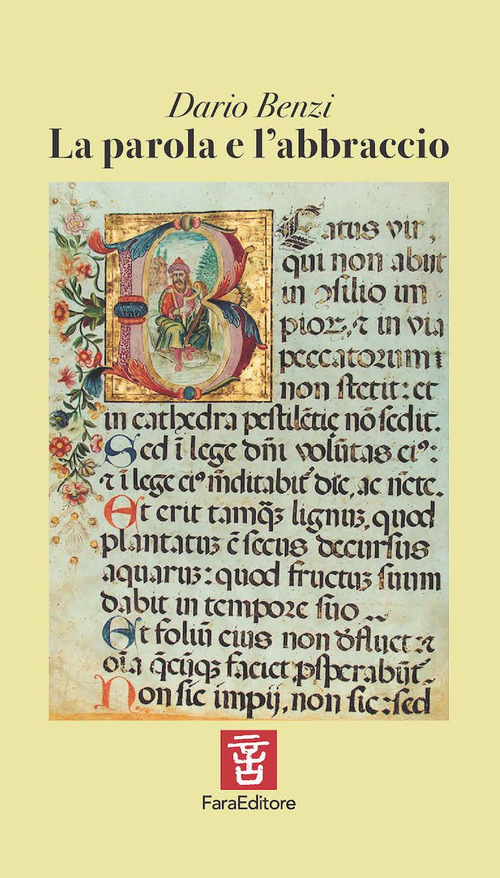 Dario Benzi
La parola e l'abbraccio
Beatus vir,
qui non abijt
in ꝯsilio im
pioꝝ, ⁊ in via
peccatorum
non stetit: et
in cathedra pestilētie nō sedit.
Sed ī lege dn̄i volūtas eiꝰ:
⁊ ī lege eiꝰ m̄ditabit᷑ die, ac n̄cte.
Et erit tamqꝫ lignuꝫ, quod
plantatuꝫ ē secus decursus
aquaruꝫ: quod fructuꝫ suum
dabit in tempore suo
Et foliū eius non dꝭfluet: ⁊
oīa q̄cūqꝫ faciet ꝓsperabūt᷑.
Non sic impij, non sic: sed
FaraEditore